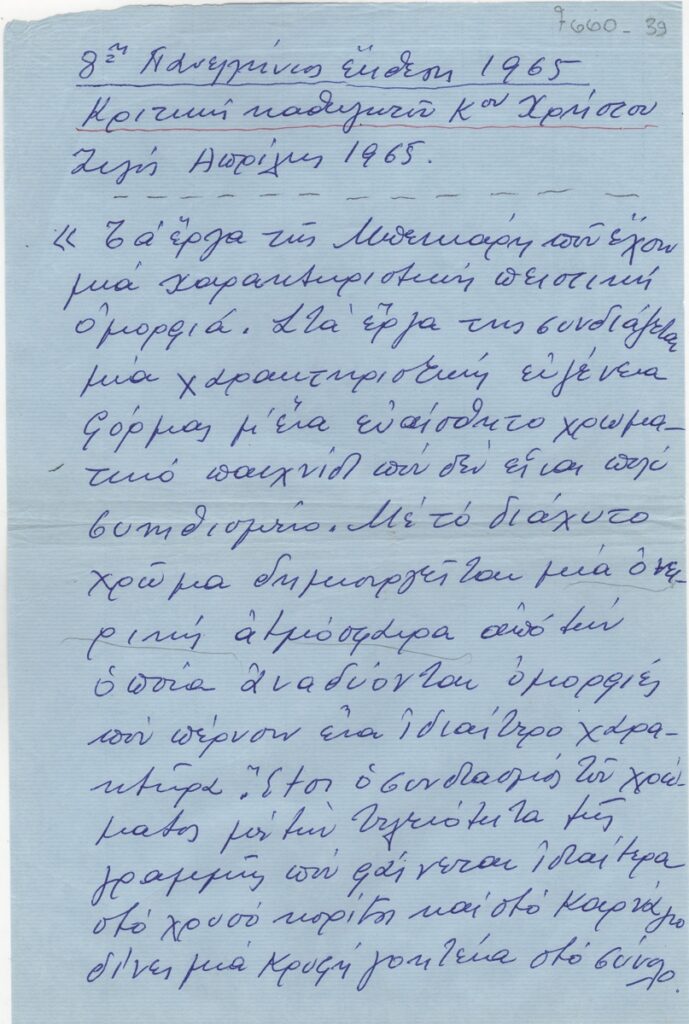 7660 - 39
8η Πανελλήνιος ἔκθεση 1965
Κριτική καθηγητοῦ Κου Χρήστου
Ἀπρίλης 1965.
« Τά ἔργα τῆς Μπεκιάρη πού ἔχουν
μιά χαρακτηριστική πειστική
ὀμορφιά. Στά ἔργα της συνδιάζεται
μία χαρακτηριστική εὐγένεια
φόρμας μ' ἕνα εὐαίσθητο χρωμα-
τικό παιχνίδι πού δέν εἶναι πολύ
συνηθισμένο. Μέ τό διάχυτο
χρῶμα δημιουργεῖται μιά ὀνει-
ρική ἀτμόσφαιρα ἀπό τήν
ὁποία ἀναδύονται ὀμορφιές
πού πέρνουν ἕνα ἰδιαίτερο χαρα-
κτῆρα. Ἔτσι ὁ συνδιασμός τοῦ χρώ-
ματος μέ τήν τελειότητα τῆς
γραμμῆς πού φαίνεται ἰδιαίτερα
στό χρυσό κορίτσι καί στό Καρνάγιο
δίνει μιά κρυφή γοητεία στό σύνολο.